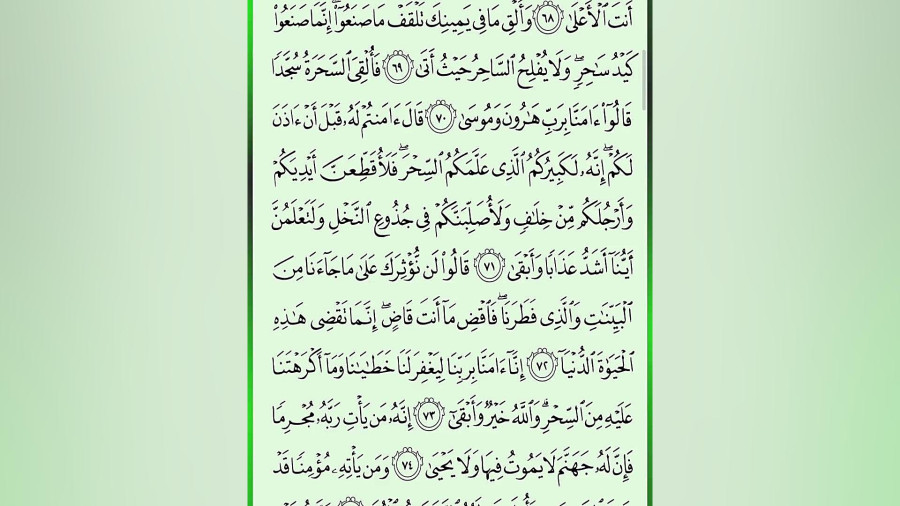 أَنتَ ٱلْأَعْلَىٰ ٦٨ وَأَلْقِ مَا فِى يَمِينِكَ تَلْقَفْ مَا صَنَعُوٓا۟ ۖ إِنَّمَا صَنَعُوا۟
كَيْدُ سَـٰحِرٍ ۖ وَلَا يُفْلِحُ ٱلسَّاحِرُ حَيْثُ أَتَىٰ ٦٩ فَأُلْقِىَ ٱلسَّحَرَةُ سُجَّدًا
قَالُوٓا۟ ءَامَنَّا بِرَبِّ هَـٰرُونَ وَمُوسَىٰ ٧٠ قَالَ ءَامَنتُمْ لَهُۥ قَبْلَ أَنْ ءَاذَنَ
لَكُمْ ۖ إِنَّهُۥ لَكَبِيرُكُمُ ٱلَّذِى عَلَّمَكُمُ ٱلسِّحْرَ ۖ فَلَأُقَطِّعَنَّ أَيْدِيَكُمْ
وَأَرْجُلَكُم مِّنْ خِلَـٰفٍ وَلَأُصَلِّبَنَّكُمْ فِى جُذُوعِ ٱلنَّخْلِ وَلَتَعْلَمُنَّ
أَيُّنَآ أَشَدُّ عَذَابًا وَأَبْقَىٰ ٧١ قَالُوا۟ لَن نُّؤْثِرَكَ عَلَىٰ مَا جَآءَنَا مِنَ
ٱلْبَيِّنَـٰتِ وَٱلَّذِى فَطَرَنَا ۖ فَٱقْضِ مَآ أَنتَ قَاضٍ ۖ إِنَّمَا تَقْضِى هَـٰذِهِ
ٱلْحَيَوٰةَ ٱلدُّنْيَآ ٧٢ إِنَّآ ءَامَنَّا بِرَبِّنَا لِيَغْفِرَ لَنَا خَطَـٰيَـٰنَا وَمَآ أَكْرَهْتَنَا
عَلَيْهِ مِنَ ٱلسِّحْرِ ۗ وَٱللَّهُ خَيْرٌ وَأَبْقَىٰٓ ٧٣ إِنَّهُۥ مَن يَأْتِ رَبَّهُۥ مُجْرِمًا
فَإِنَّ لَهُۥ جَهَنَّمَ لَا يَمُوتُ فِيهَا وَلَا يَحْيَىٰ ٧٤ وَمَن يَأْتِهِۦ مُؤْمِنًا قَدْ